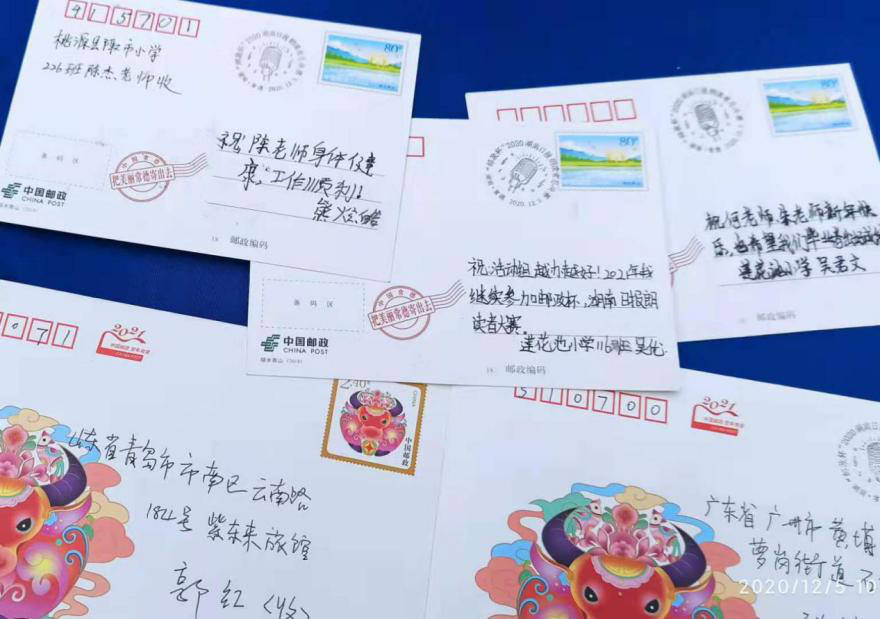 415701
桃源县陬市小学
226班陈杰老师收
80分
2020.12.5
祝陈老师身体健
康,工作顺利!
条码区
中国常德
把美丽常德寄出去
中国邮政
CHINA POST
邮政编码
80分
2020.12.5
祝活动组越办越好!2021年我
继续参加邮政杯,湖南日报朗
读者大赛。
莲花池小学116班吴优
条码区
中国常德
把美丽常德寄出去
中国邮政
CHINA POST
邮政编码
80分
祝何老师 朱老师新年快
莲花池小学 吴君文
邮政编码
071
2021
2.40元
CHINA
中国邮政
山东省青岛市市南区云南路
182号 紫东来旅馆
郭红(收)
510700
2021
广东省 广州市 黄埔
萝岗街道
2020/12/5-10